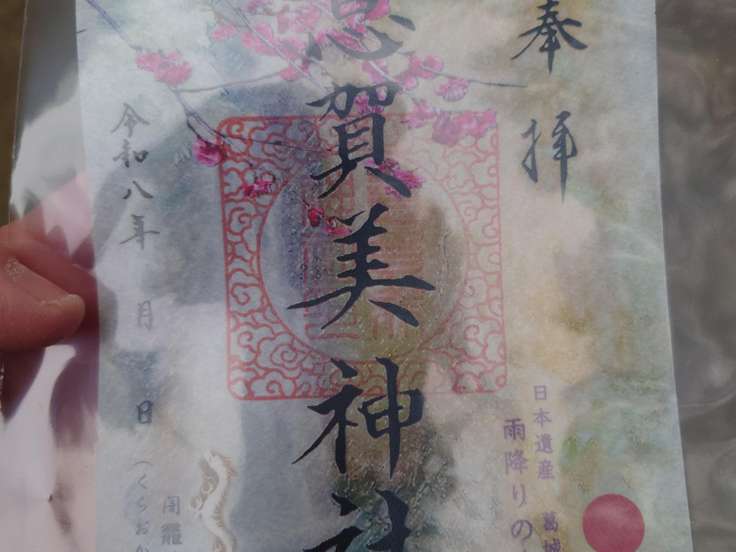 奉拝
日本遺産 葛城
雨降りの
意賀美神社
令和八年 月 日
闇龗
(くらおか